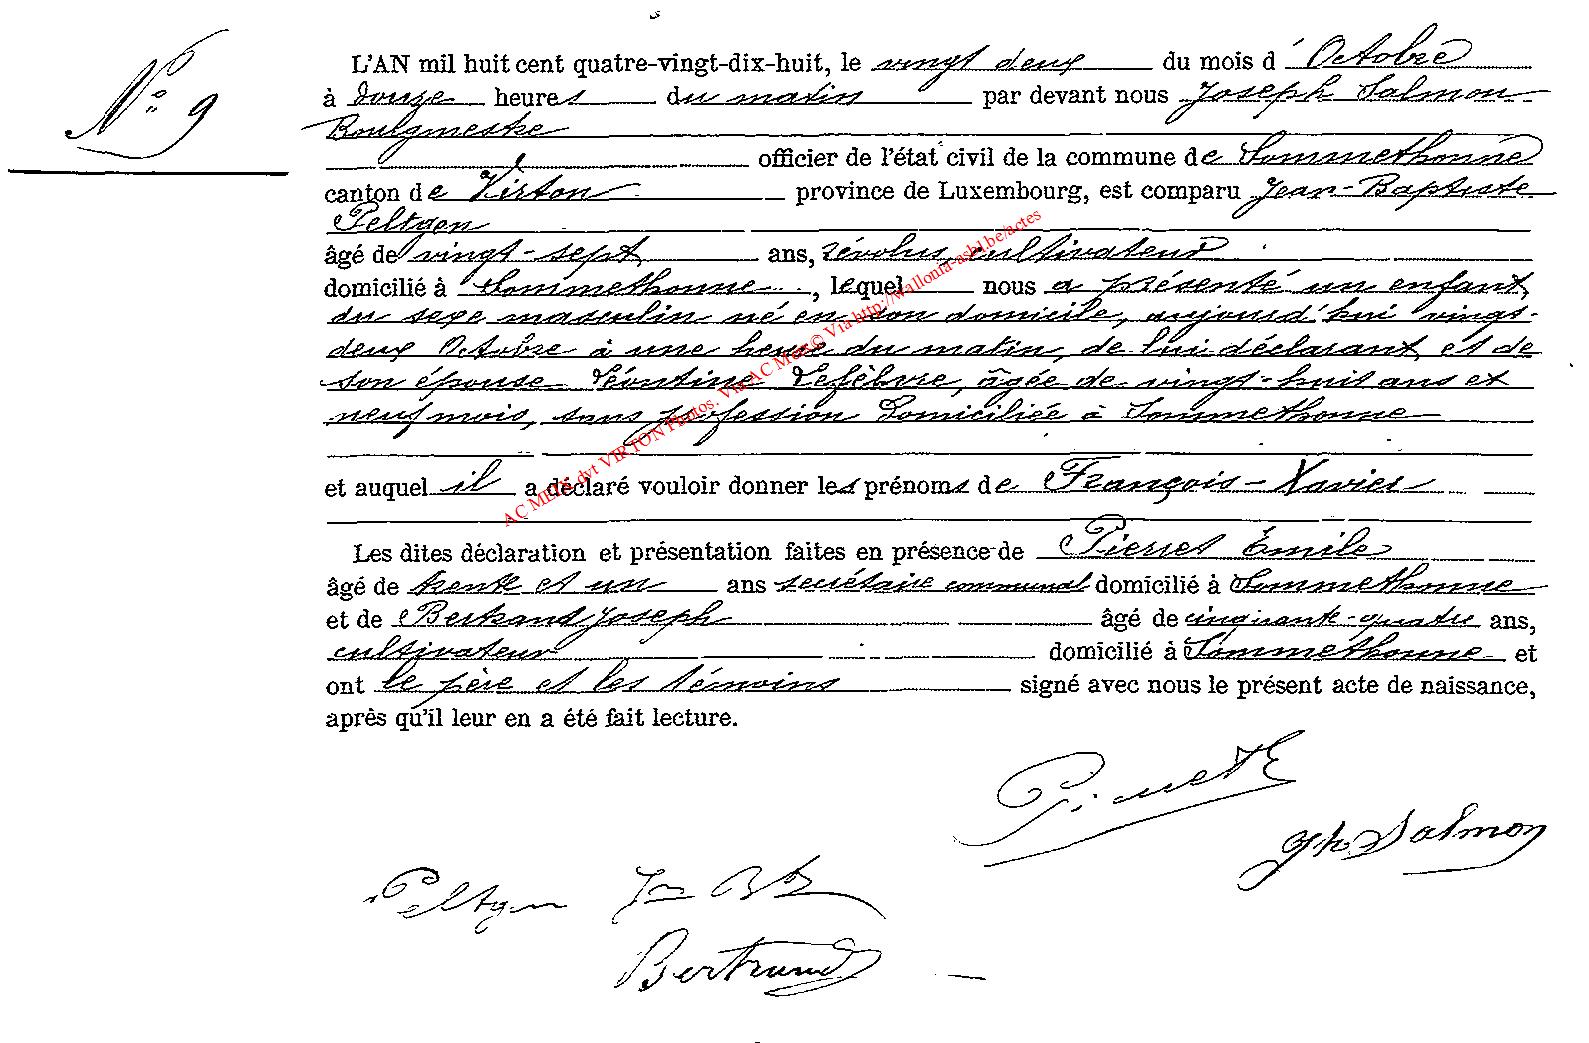 N° 9
L'AN mil huit cent quatre-vingt-dix-huit, le vingt deux du mois d' Octobre
à douze heures du matin par devant nous Joseph Salmon
Boulgmestre
officier de l'état civil de la commune de Sommethonne
canton de Virton province de Luxembourg, est comparu Jean-Baptiste
Peltgen
âgé de vingt-sept ans, révolus, cultivateur
domicilié à Sommethonne, lequel nous a présenté un enfant
du sexe masculin né en son domicile, aujourd'hui vingt-
deux Octobre à une heure du matin, de lui déclarant et de
son épouse Léontine Lefèbvre, âgée de vingt-huit ans et
neuf mois, sans profession domiciliée à Sommethonne
et auquel il a déclaré vouloir donner les prénoms de François-Xavier
Les dites déclaration et présentation faites en présence de Pierret Émile
âgé de trente et un ans secrétaire communal domicilié à Sommethonne
et de Bertrand Joseph âgé de cinquante-quatre ans,
cultivateur domicilié à Sommethonne et
ont le père et les témoins signé avec nous le présent acte de naissance,
après qu'il leur en a été fait lecture.
Jh Salmon
Peltgen Jn Bte
Bertrand
AC MEIX dvt VIRTON Photos. Via AC Meix© Via http://wallonia-asbl.be/actes